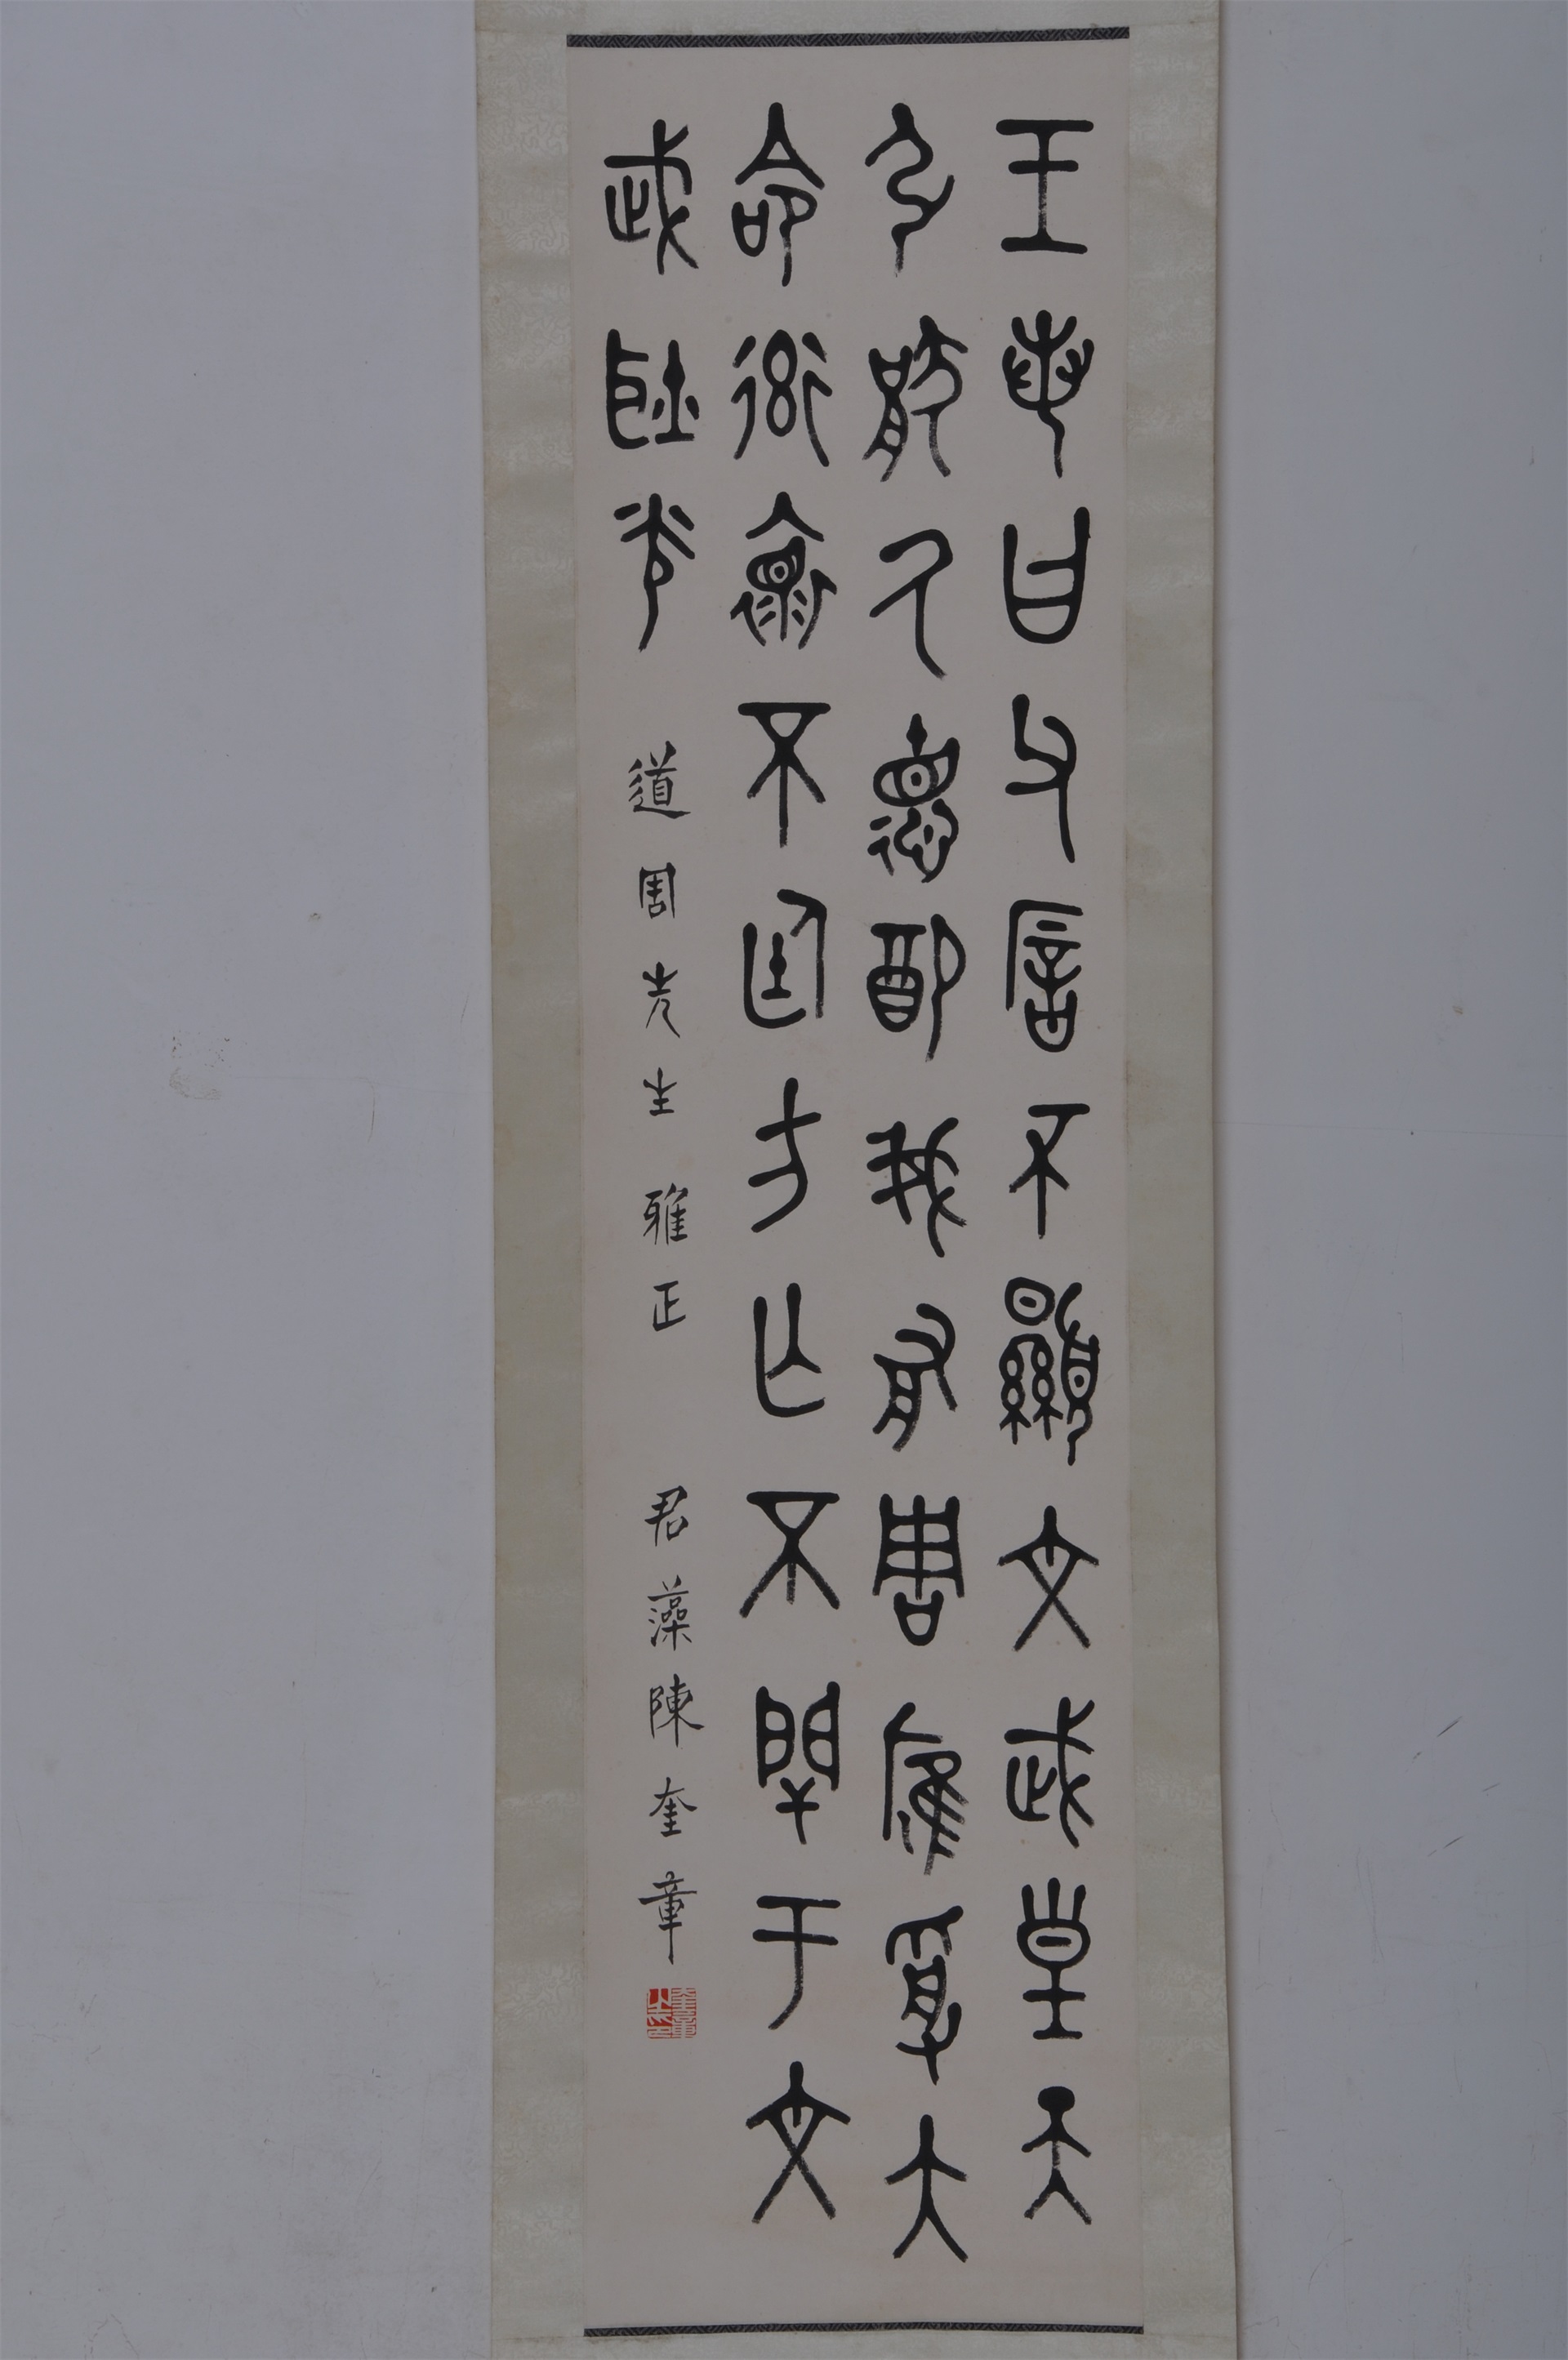 王若曰父厝不顯文武皇天
弘猒氒德配我有周膺受大
命率懷不廷方亡不閈于文
武耿光
道周先生雅正 君藻陳奎章